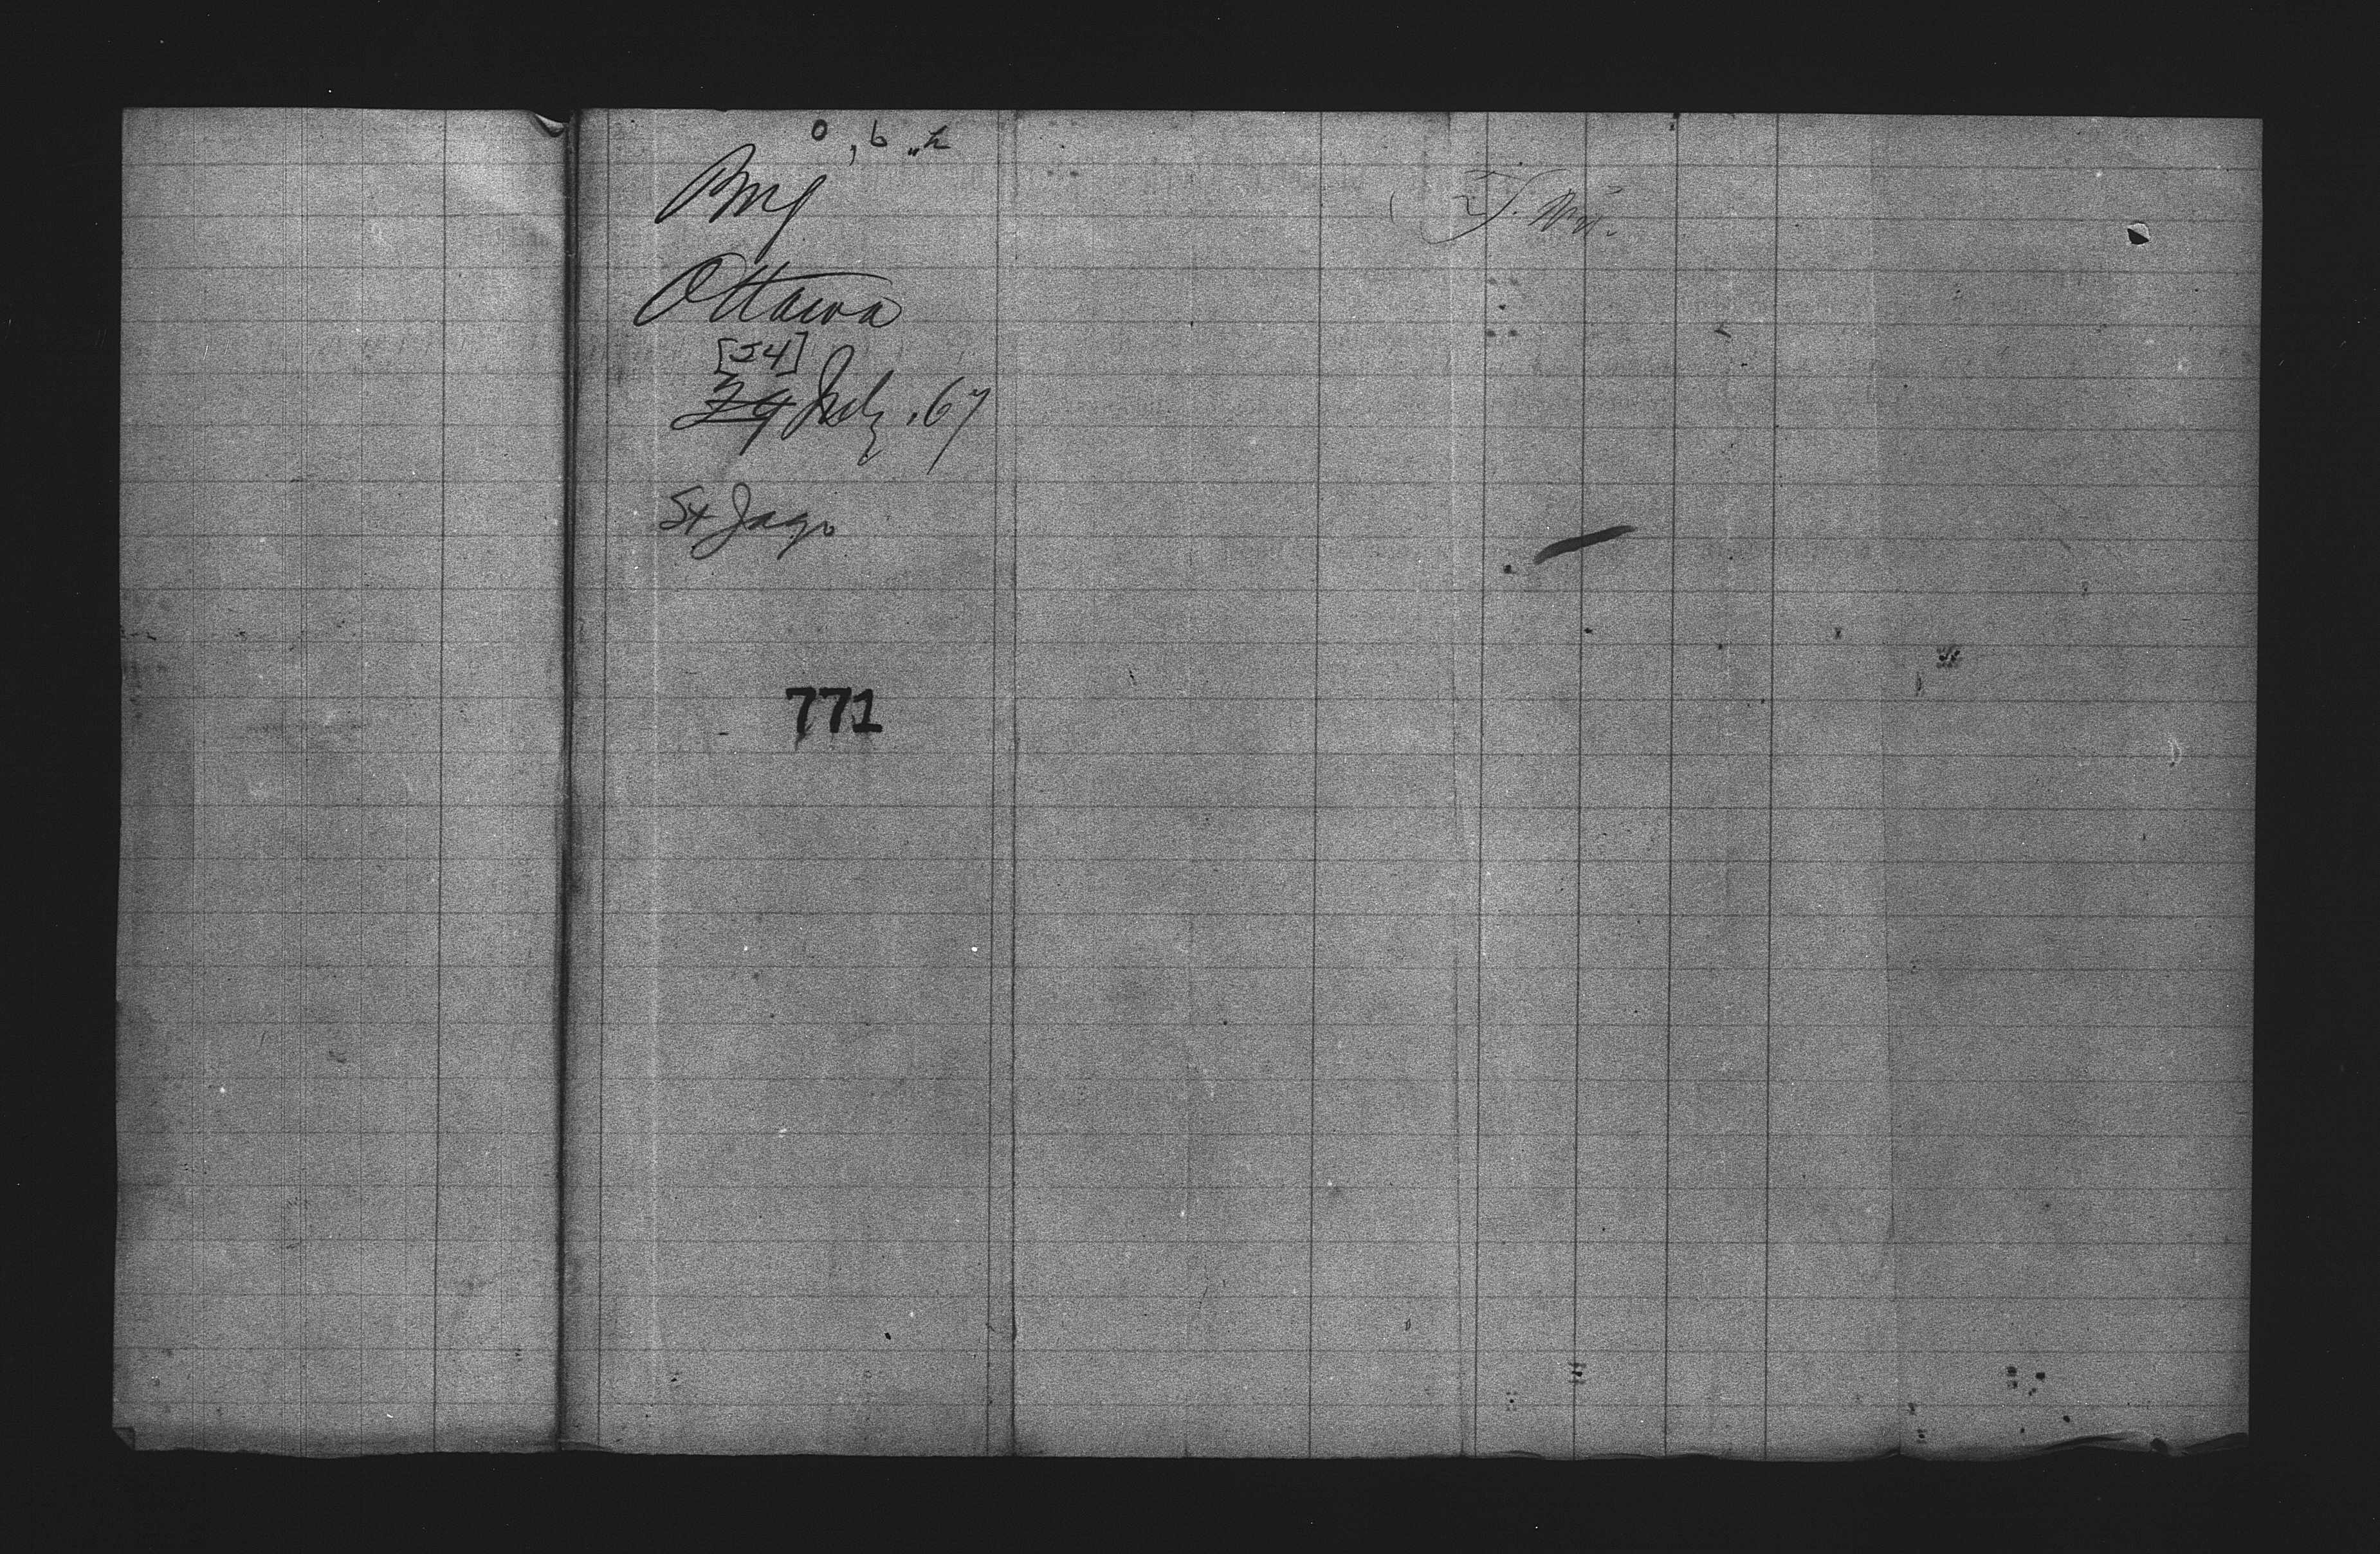 Brig
Ottawa
[24]
24 July .67
St Jago
771